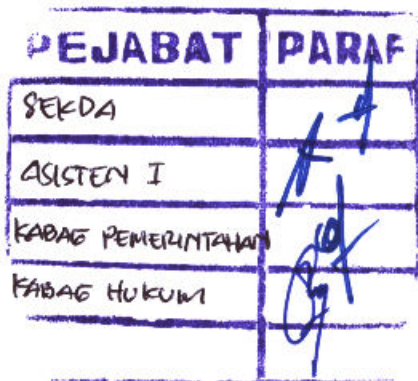 PEJABAT PARAF
SEKDA
ASISTEN I
KABAG PEMERINTAHAN
KABAG HUKUM